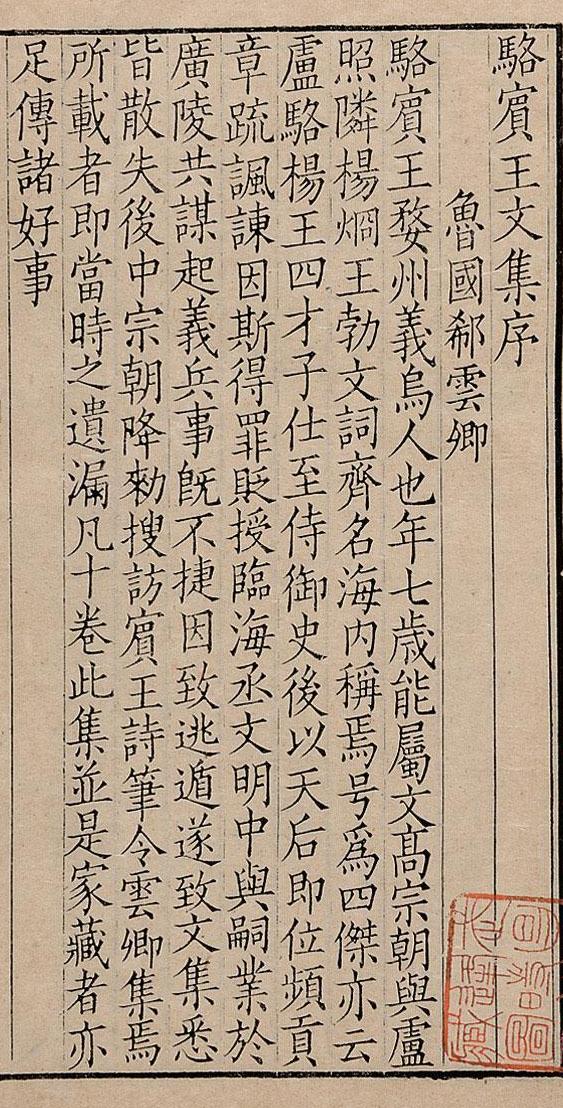 駱賓王文集序
魯國郗雲卿
駱賓王婺州義烏人也年七歳能屬文髙宗朝與盧
照隣楊烱王勃文詞齊名海内稱焉号爲四傑亦云
盧駱楊王四才子仕至侍御史後以天后即位頻貢
章疏諷諫因斯得罪貶授臨海丞文明中與嗣業於
廣陵共謀起義兵事旣不捷因致逃遁遂致文集悉
皆散失後中宗朝降勑搜訪賓王詩筆令雲卿集焉
所載者即當時之遺漏凡十卷此集並是家藏者亦
足傳諸好事